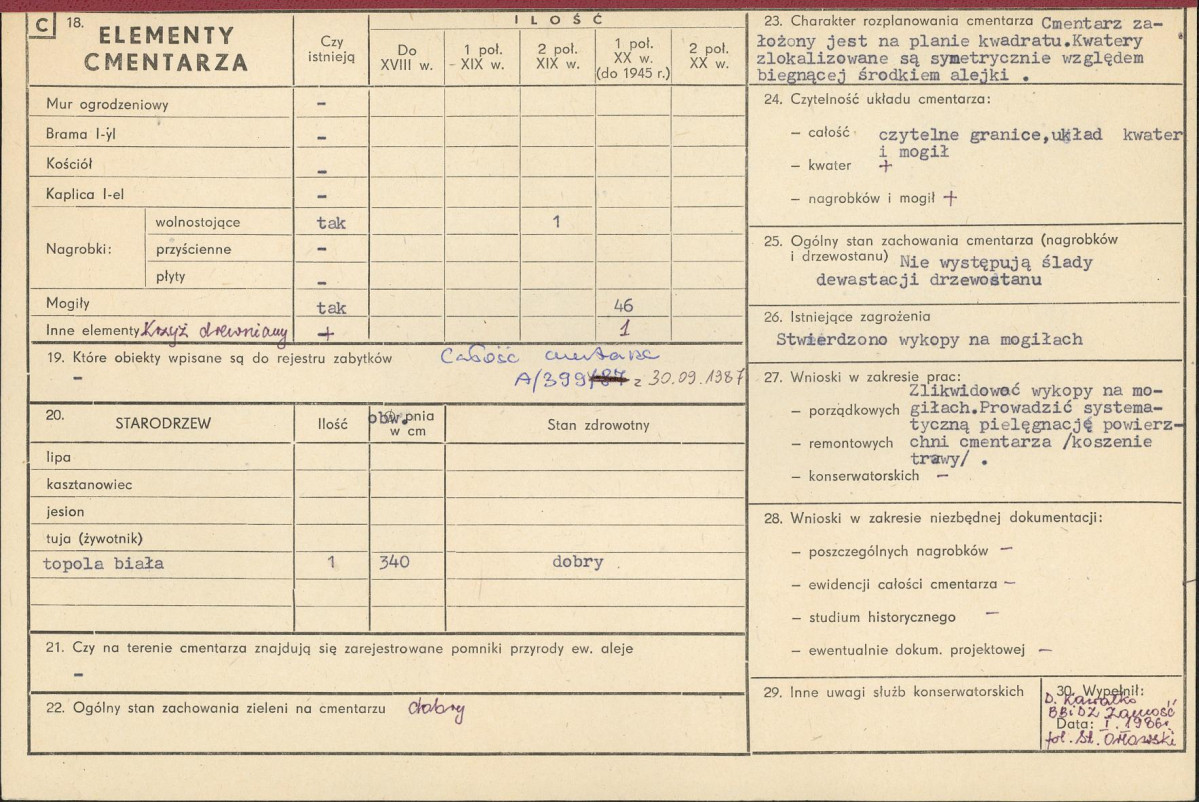 C 18. ELEMENTY CMENTARZA
Czy istnieją
ILOŚĆ
Do XVIII w.
1 poł. XIX w.
2 poł. XIX w.
1 poł. XX w. (do 1945 r.)
2 poł. XX w.
Mur ogrodzeniowy -
Brama I-yl -
Kościół -
Kaplica I-el -
Nagrobki:
wolnostojące tak 1
przyścienne -
płyty -
Mogiły tak 46
Inne elementy Krzyż drewniany + 1
19. Które obiekty wpisane są do rejestru zabytków Całość cmentarza
- A/399/87 z 30.09.1987
20. STARODRZEW
Ilość
obw. w cm
Stan zdrowotny
lipa
kasztanowiec
jesion
tuja (żywotnik)
topola biała 1 340 dobry
21. Czy na terenie cmentarza znajdują się zarejestrowane pomniki przyrody ew. aleje
-
22. Ogólny stan zachowania zieleni na cmentarzu dobry
23. Charakter rozplanowania cmentarza Cmentarz za-
łożony jest na planie kwadratu.Kwatery
zlokalizowane są symetrycznie względem
biegnącej środkiem alejki .
24. Czytelność układu cmentarza:
– całość czytelne granice,układ kwater
i mogił
– kwater +
– nagrobków i mogił +
25. Ogólny stan zachowania cmentarza (nagrobków
i drzewostanu) Nie występują ślady
dewastacji drzewostanu
26. Istniejące zagrożenia
Stwierdzono wykopy na mogiłach
27. Wnioski w zakresie prac:
Zlikwidować wykopy na mo-
– porządkowych giłach.Prowadzić systema-
tyczną pielęgnację powierz-
– remontowych chni cmentarza /koszenie
trawy/ .
– konserwatorskich –
28. Wnioski w zakresie niezbędnej dokumentacji:
– poszczególnych nagrobków –
– ewidencji całości cmentarza –
– studium historycznego –
– ewentualnie dokum. projektowej –
29. Inne uwagi służb konserwatorskich
30. Wypełnił:
D. Kawałko
BBiDZ Zamość
Data: I. 1986r.
fot. St. Orłowski